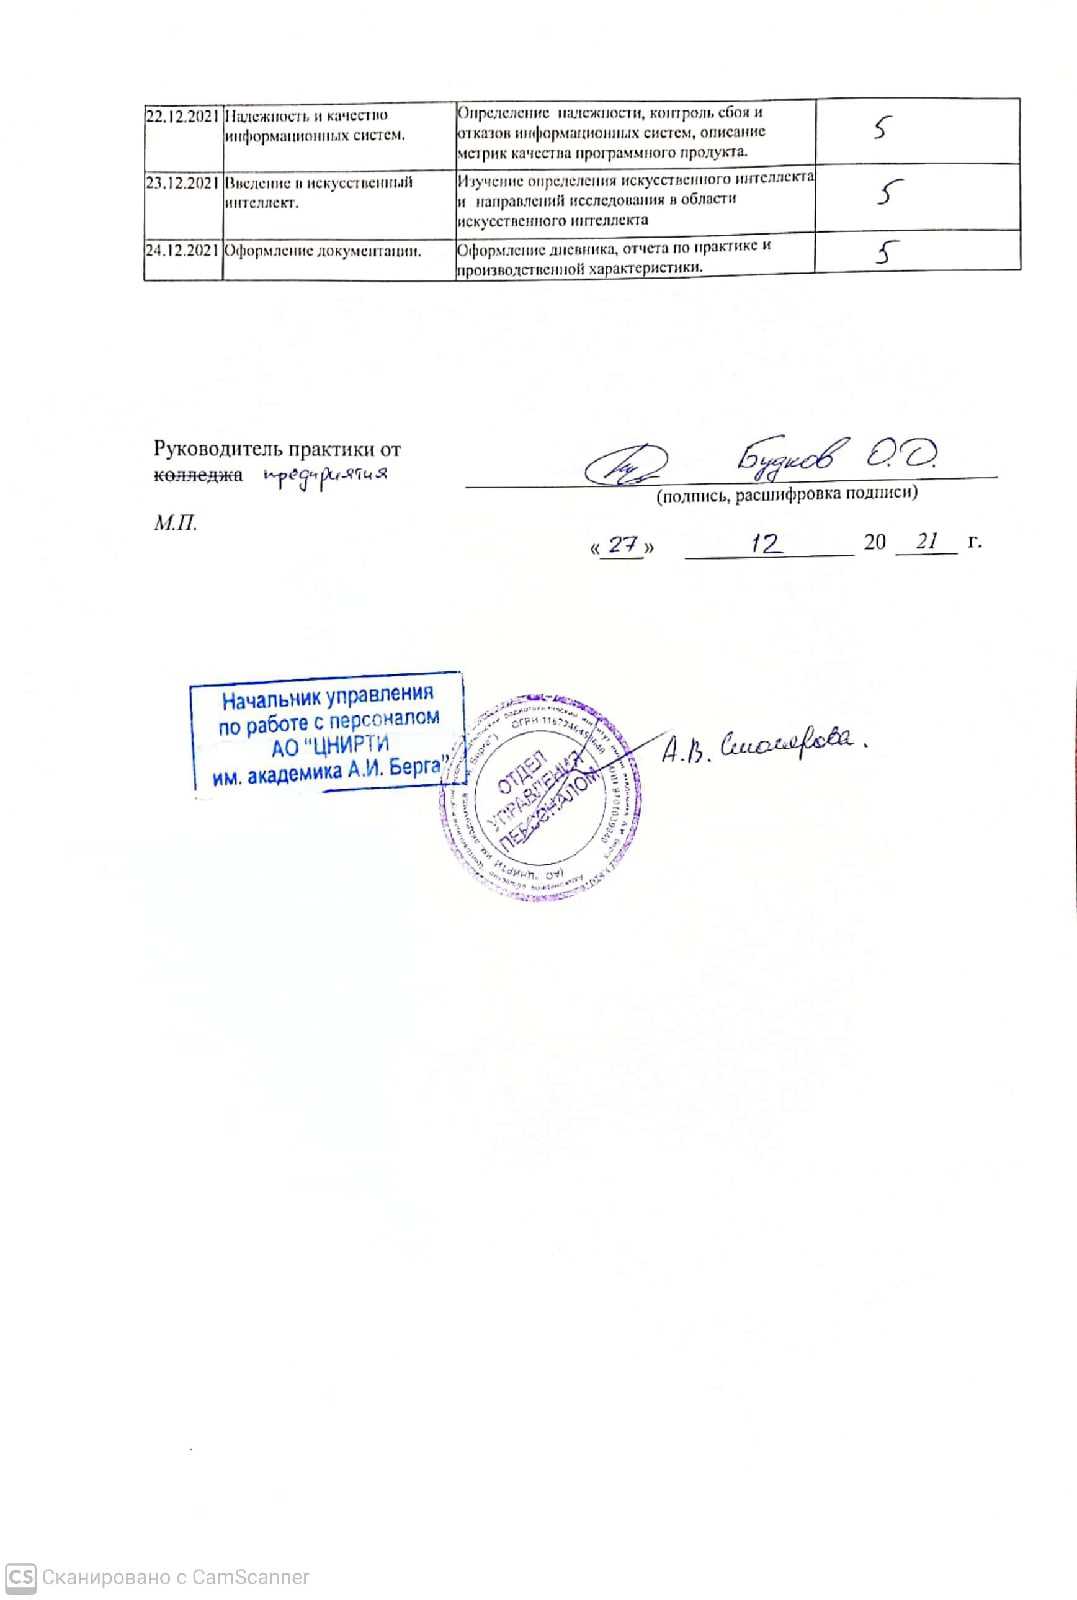 22.12.2021 Надежность и качество информационных систем. Определение надежности, контроль сбоя и отказов информационных систем, описание метрик качества программного продукта. 5
23.12.2021 Введение в искусственный интеллект. Изучение определения искусственного интеллекта и направлений исследования в области искусственного интеллекта 5
24.12.2021 Оформление документации. Оформление дневника, отчета по практике и производственной характеристики. 5
Руководитель практики от
колледжа предприятия
Будков О.О.
(подпись, расшифровка подписи)
М.П.
«27» 12 20 21 г.
Начальник управления
по работе с персоналом
АО "ЦНИРТИ
им. академика А.И. Берга"
ОТДЕЛ
УПРАВЛЕНИЯ
ПЕРСОНАЛОМ
(АО "ЦНИРТИ им. академика
А.В.
CS Сканировано с CamScanner